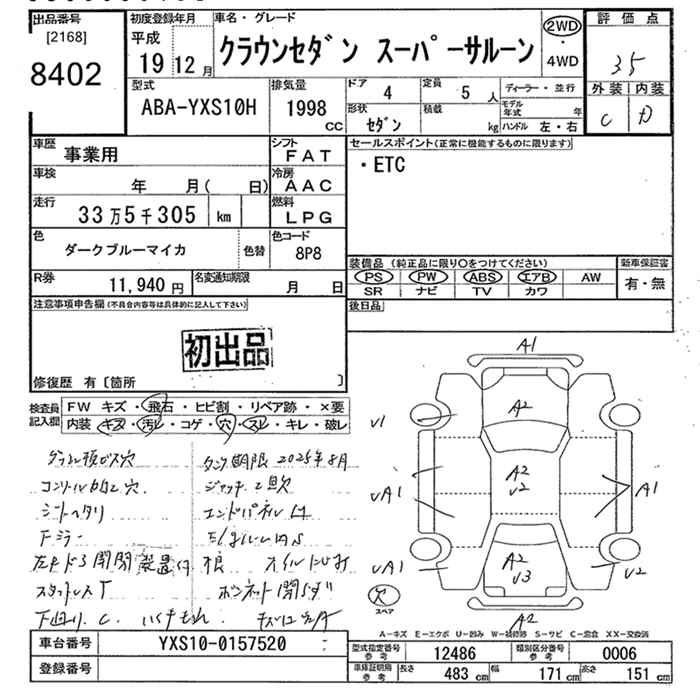 出品番号
[2168]
8402
初度登録年月
平成
19 12月
車名・グレード
クラウンセダン スーパーサルーン
2WD
・
4WD
評価点
35
外装 内装
C D
型式
ABA-YXS10H
排気量
1998
CC
ドア
4
定員
5 人
形状
セダン
積載
kg
ディーラー・並行
モデル年式 年
ハンドル 左・右
車歴
事業用
シフト
FAT
車検
年 月( 日)
冷房
AAC
走行
33万5千305 km
燃料
LPG
色
ダークブルーマイカ
色替
色コード
8P8
R券
11,940円
名変通知期限
月 日
セールスポイント(正常に機能するものに限ります)
・ETC
装備品(純正品に限り○をつけてください)
PS PW ABS エアB AW
SR ナビ TV カワ
新車保証書
有・無
後日品
注意事項申告欄(不具合内容等は具体的に記入して下さい)
初出品
修復歴 有〔箇所 〕
検査員記入欄
FW キズ・飛石・ヒビ割・リペア跡・×要
内装・キズ・汚レ・コゲ・穴・スレ・キレ・破レ
タンク期限 2025年8月
シートヘタリ
Fミラー
スタットレス T
ボンネット開らず
下回り C.
A1
A2
V1
A2
V2
UA1
A1
UA1
A2
V3
U2
A2
欠
スペア
A-キズ E-エクボ U-凹み W-補修跡 S-サビ C-腐食 XX-交換済
車台番号
YXS10-0157520
登録番号
型式指定番号参考
12486
類別区分番号参考
0006
車庫証明用参考
長さ 483 cm
幅 171 cm
高さ 151 cm